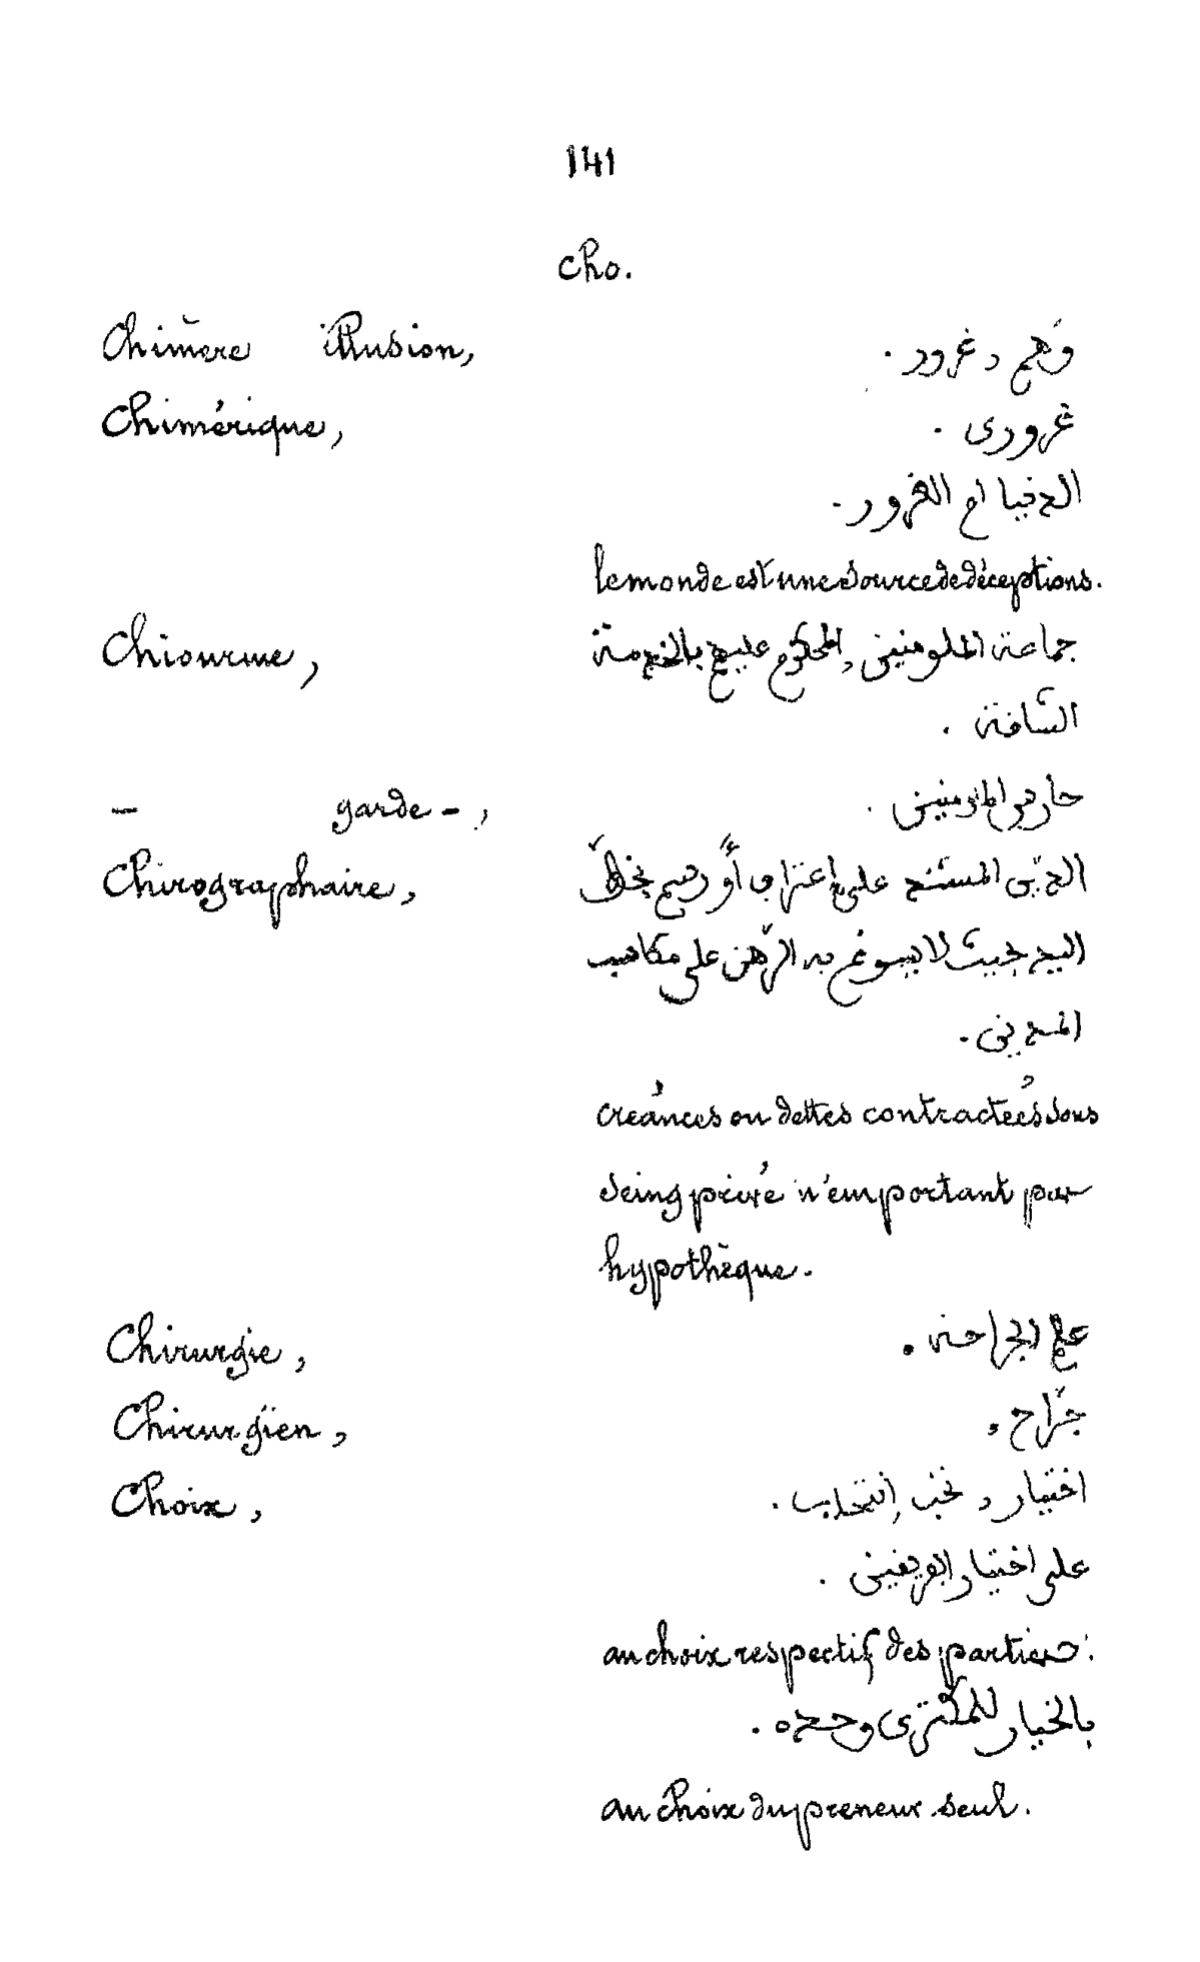 141
Cho.
Chimère illusion, وَهم, غرور.
Chimérique, غرورى.
الدنيا ام الغرور.
le monde est une source de déceptions.
Chiourme, جماعة الملومنيين, المحكوم عليهم بالخدمة
الشافة.
— garde-, حارس الملومنيين.
Chirographaire, الدّين المستند على اعتراف أو رسم بخطّ
اليد بحيث لا يسوغ به الرّهن على مكاسب
المدين.
créances ou dettes contractées sous
seing privé n'emportant par
hypothèque.
Chirurgie, علم الجراحة.
Chirurgien, جرّاح.
Choix, اختيار, نخب, انتخاب.
على اختيار الفريقين.
au choix respectif des parties.
بالخيار للمكترى وحده.
au choix du preneur seul.